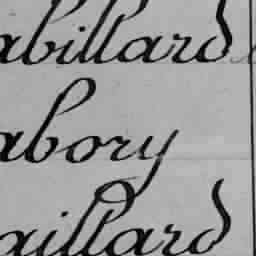 abillard
abory
aillard